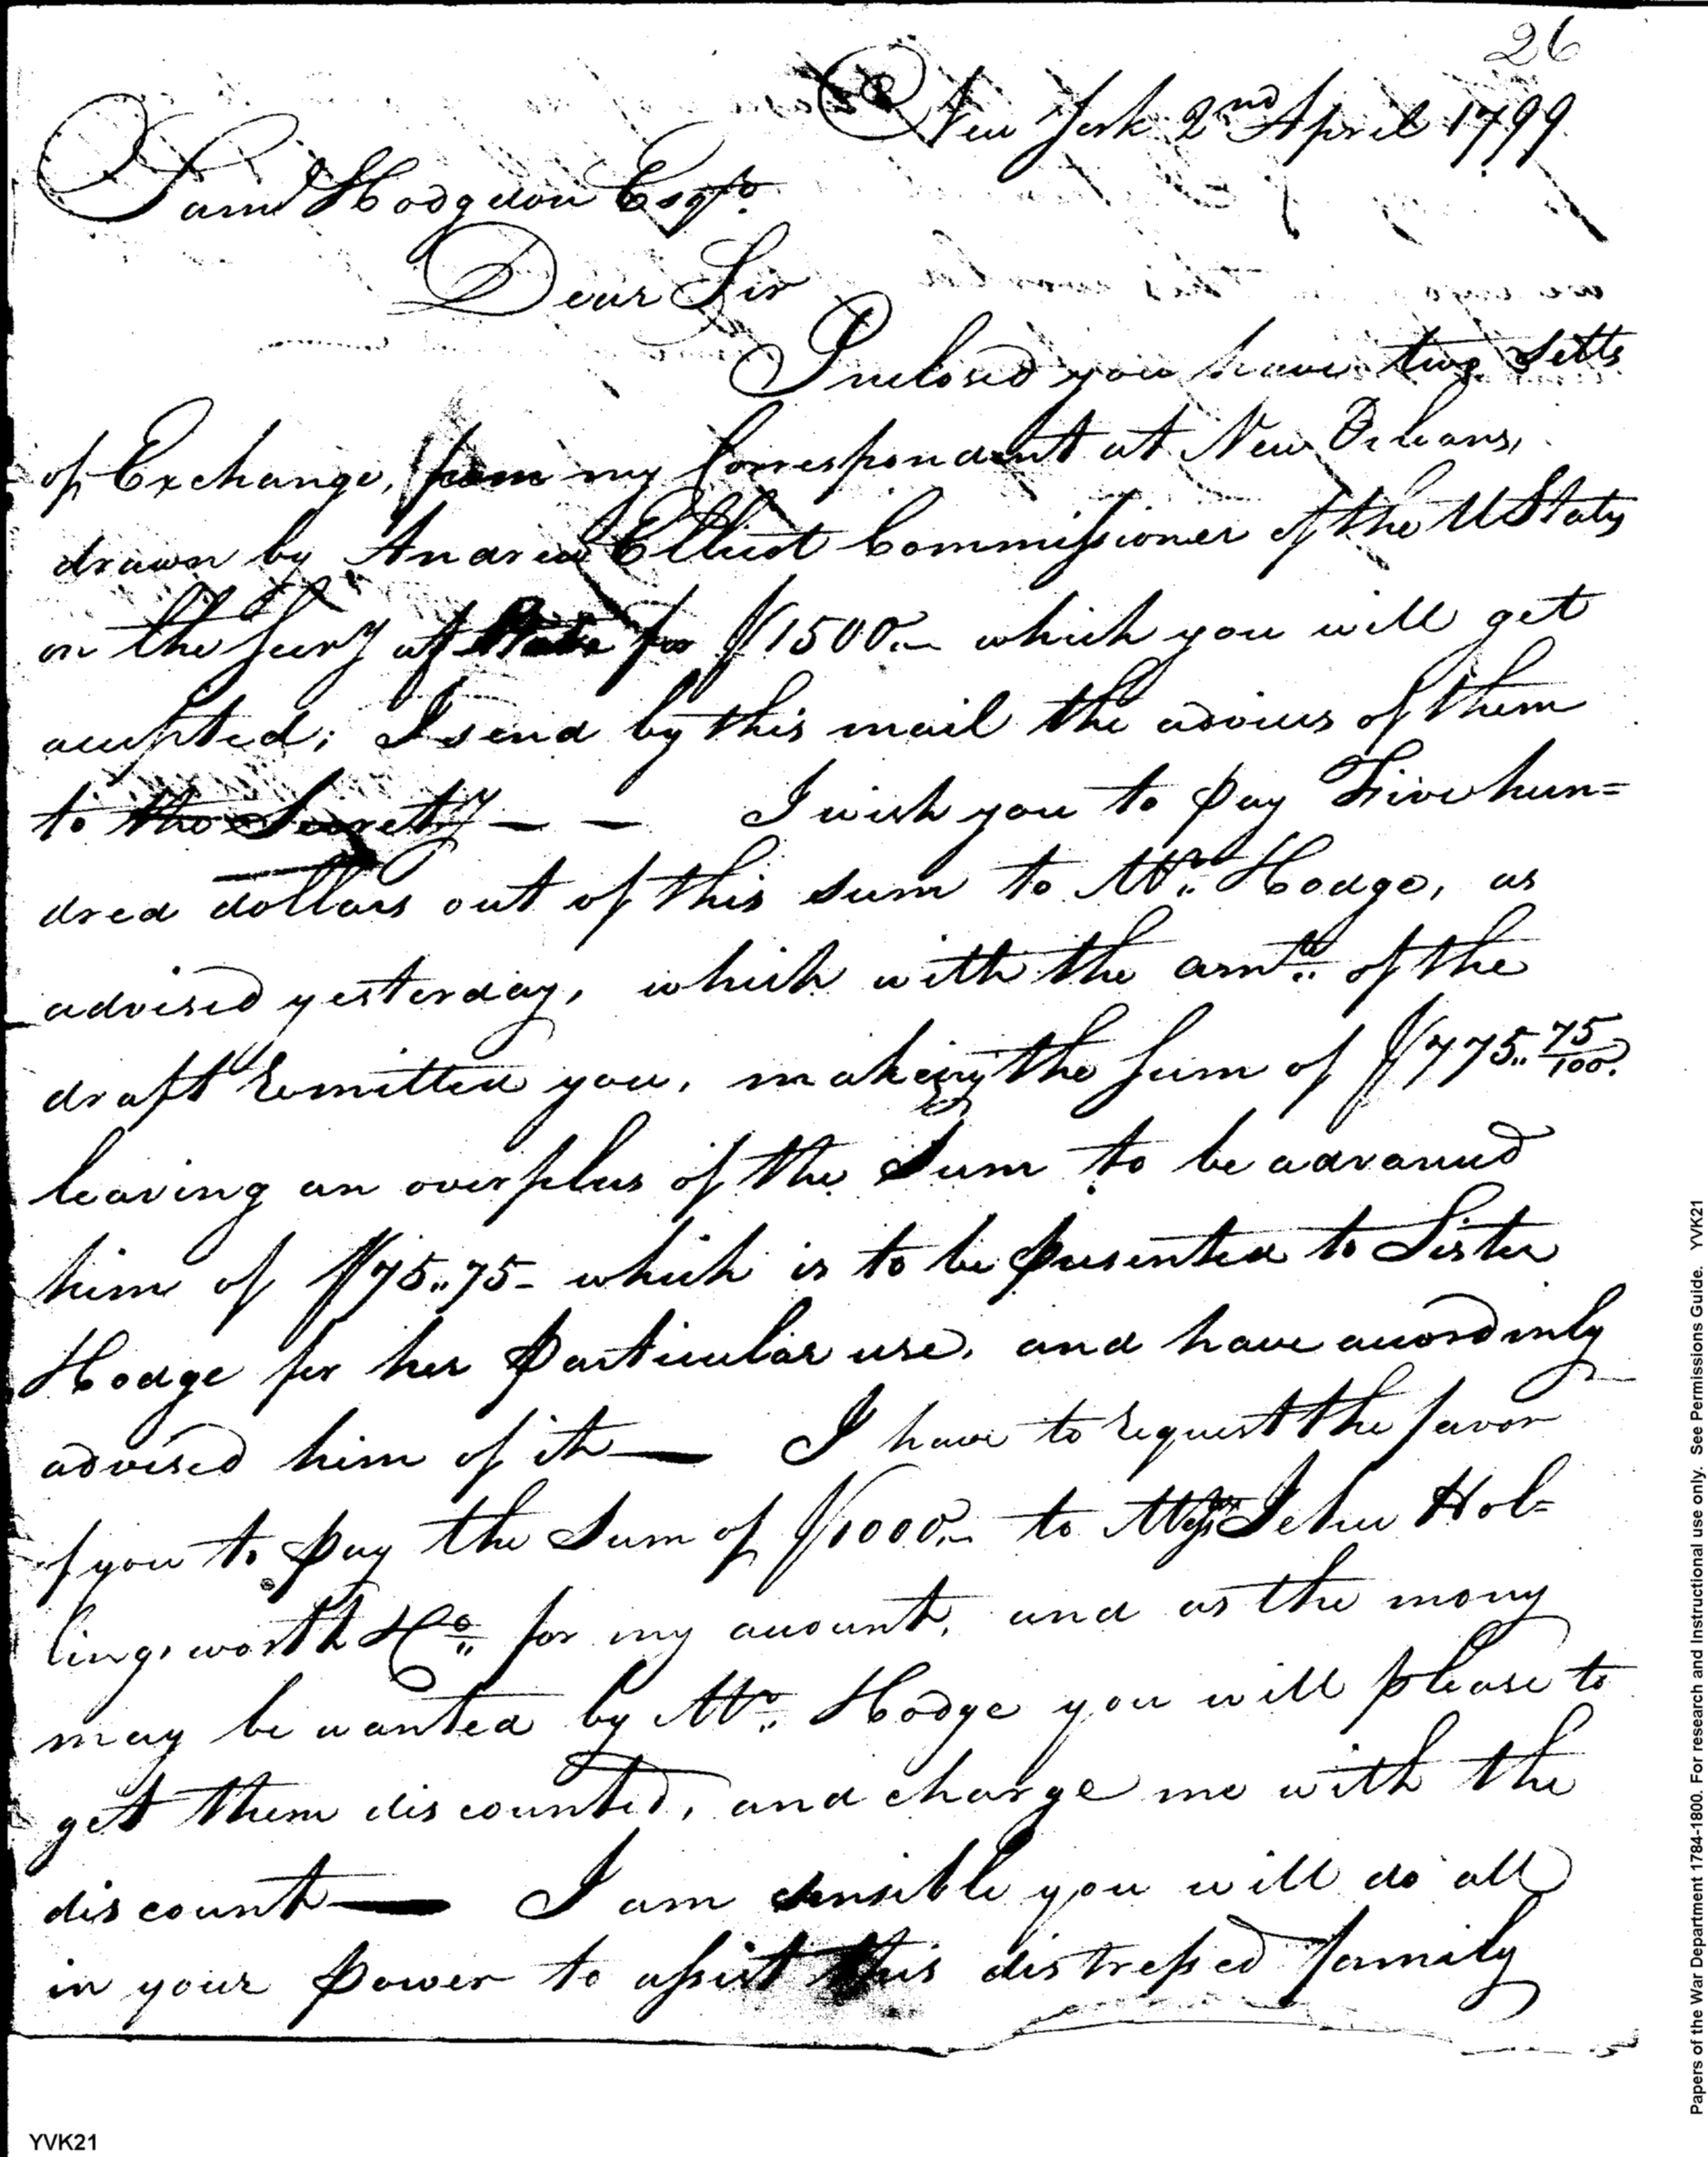 26
New York 2nd April 1799
Saml Hodgdon Esqr.
Dear Sir
Inclosed you have two Setts
of Exchange, from my Correspondent at New Orleans,
drawn by Andrew Ellicot Commissioner of the UStates
on the Secry of State for $1500.- which you will get
accepted; I send by this mail the advices of them
to the Secrety — — I wish you to pay Five hun=
dred dollars out of this sum to Mr. Hodge, as
advised yesterday, which with the amt. of the
draft remitted you, making the Sum of $775.. 75/100.
leaving an overplus of the Sum to be advanced
him of $75..75- which is to be presented to Sister
Hodge for her particular use, and have accordinly
advised him of it — I have to request the favor
of you to pay the Sum of $1000.- to Messrs Jehu Hol=
lingsworth & Co. for my account, and as the mony
may be wanted by Mr. Hodge you will please to
get them discounted, and charge me with the
discount — I am sensible you will do all
in your power to assist this distressed family
YVK21
Papers of the War Department 1784-1800. For research and Instructional use only. See Permissions Guide. YVK21